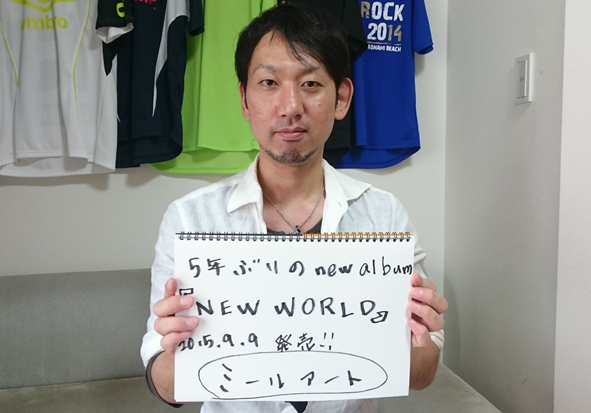 umbo
ROCK
2014
BEACH
5年ぶりのnew album
『NEW WORLD』
2015.9.9 発売!!
ミールアート